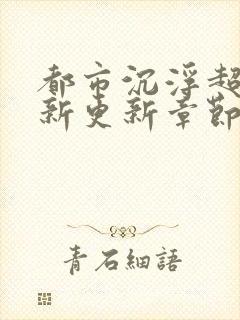 都市沉浮超
新更新章節
青石細語